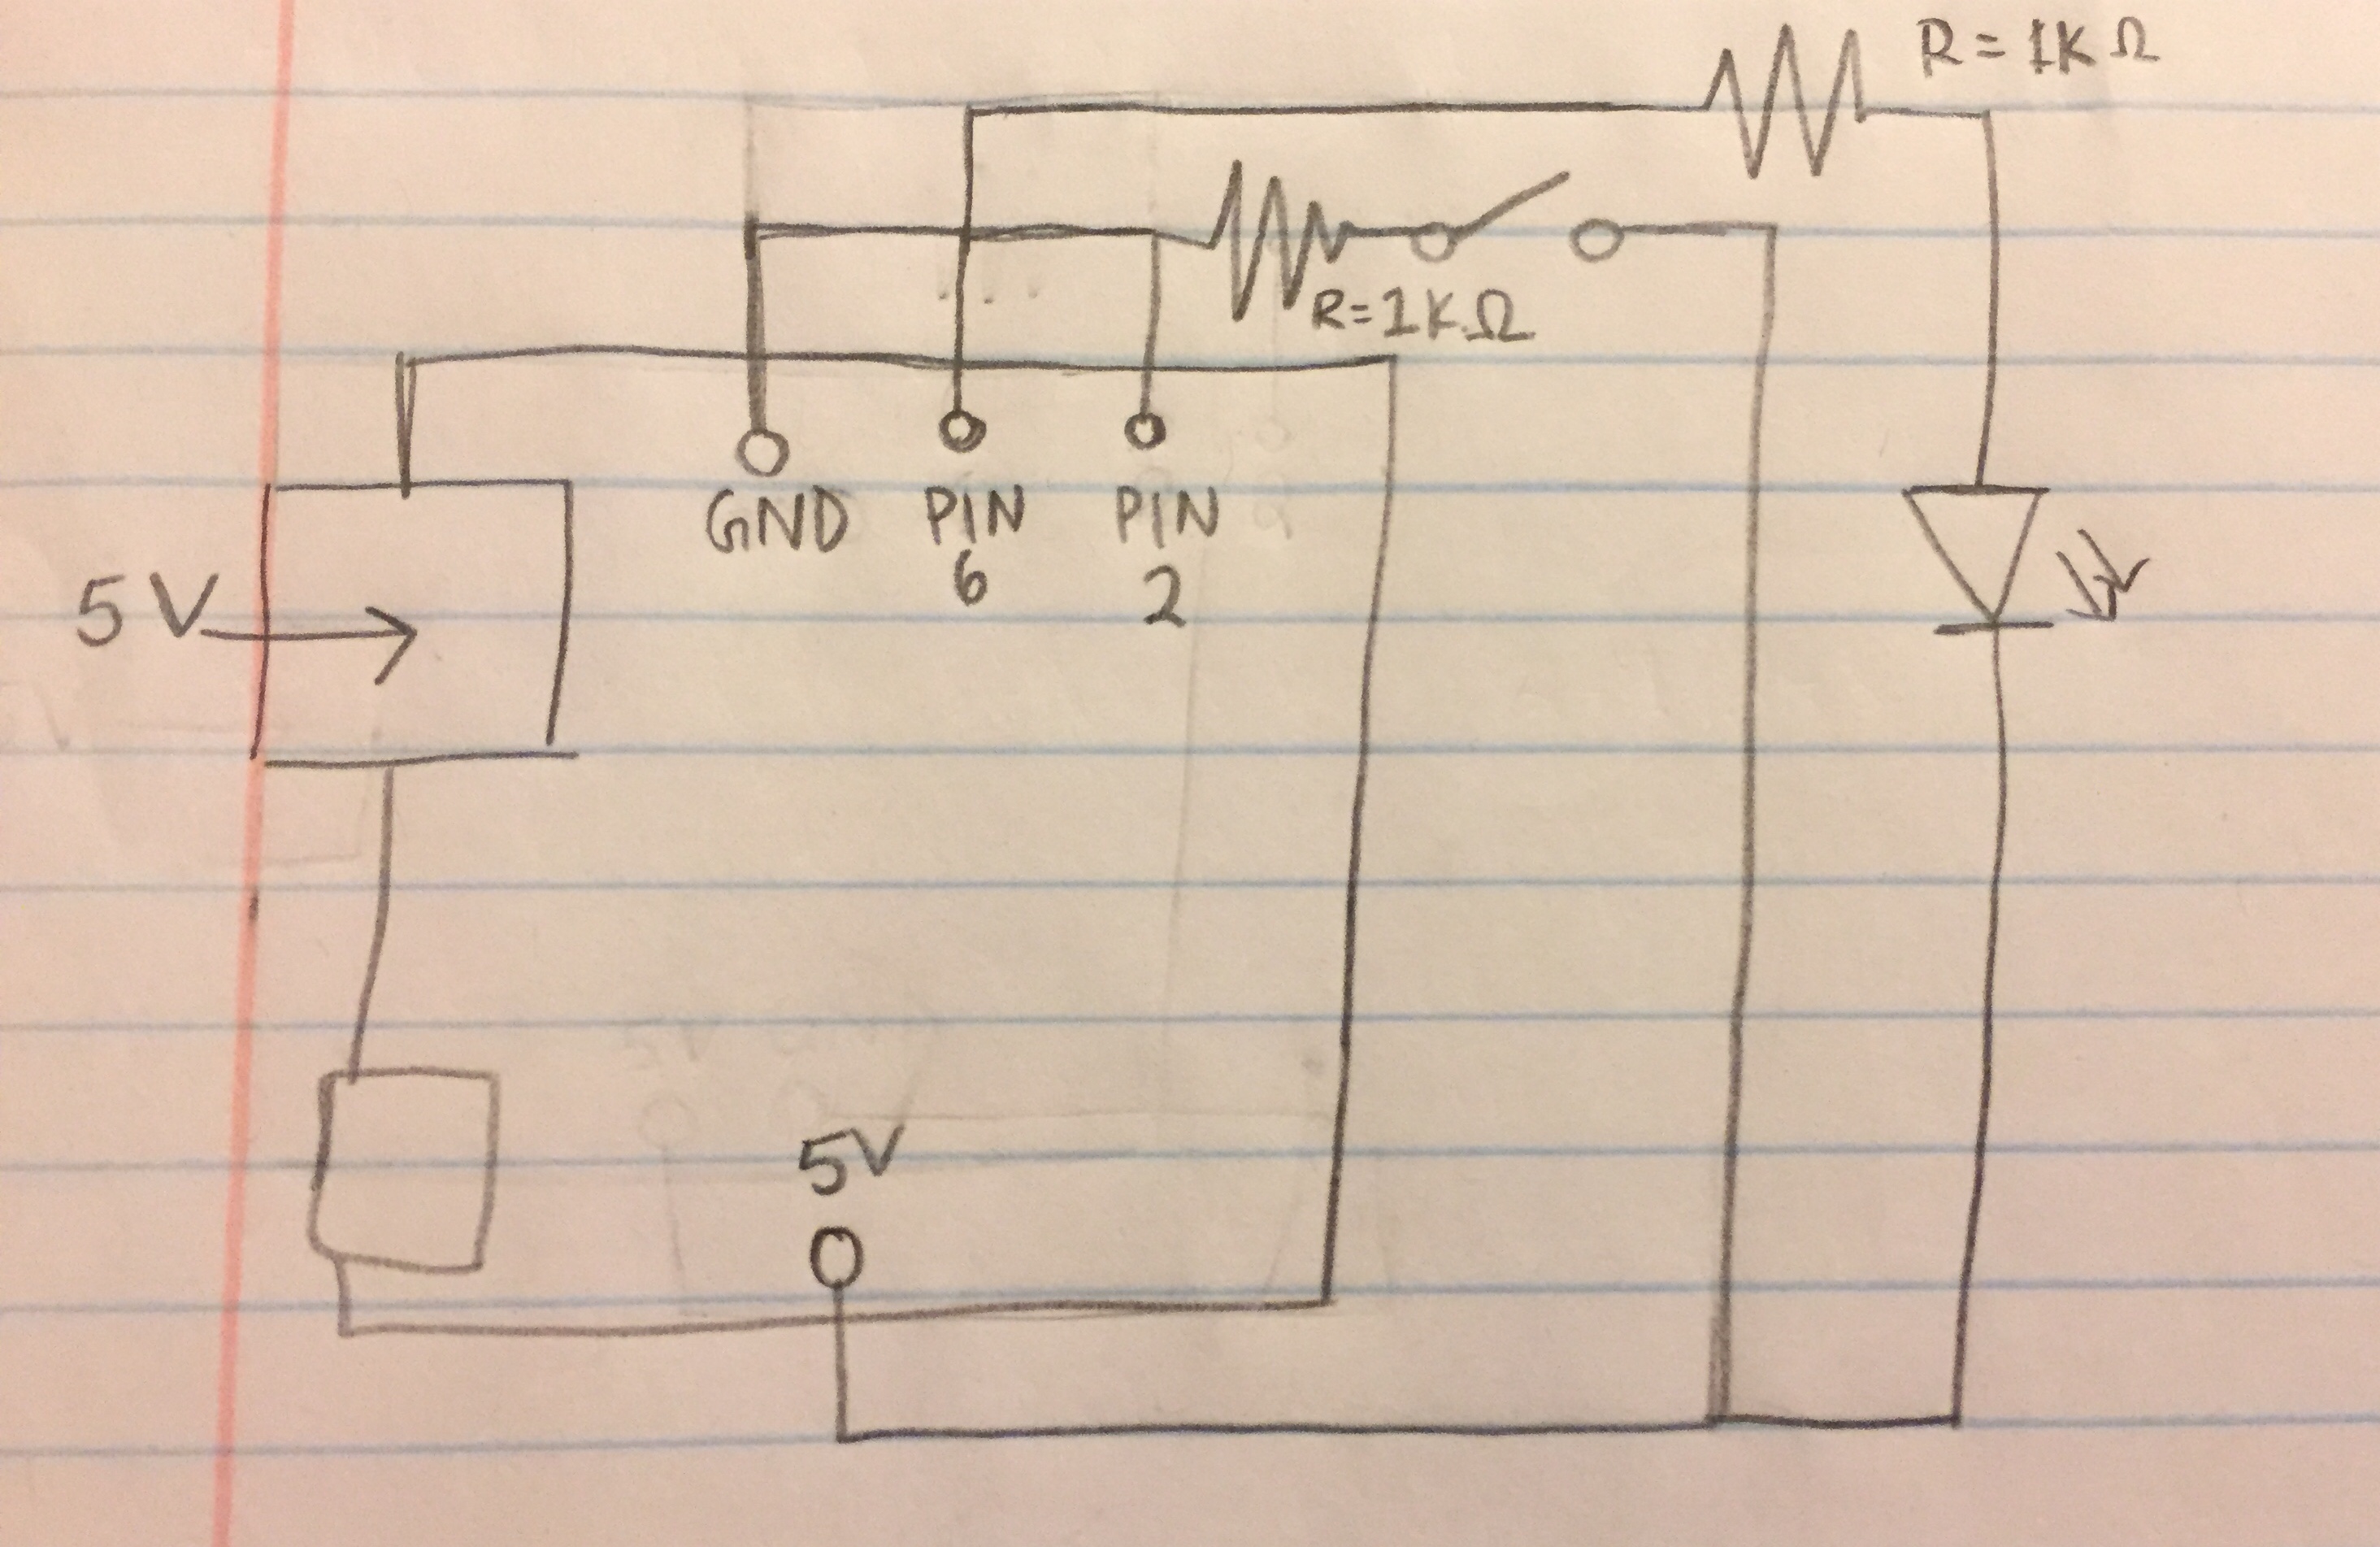 R = 1K Ω
R = 1K Ω
GND PIN PIN
6 2
5V
5V